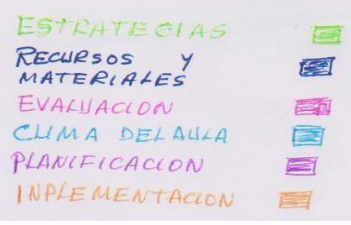 ESTRATEGIAS
RECURSOS Y
MATERIALES
EVALUACION
CLIMA DEL AULA
PLANIFICACION
INPLEMENTACION